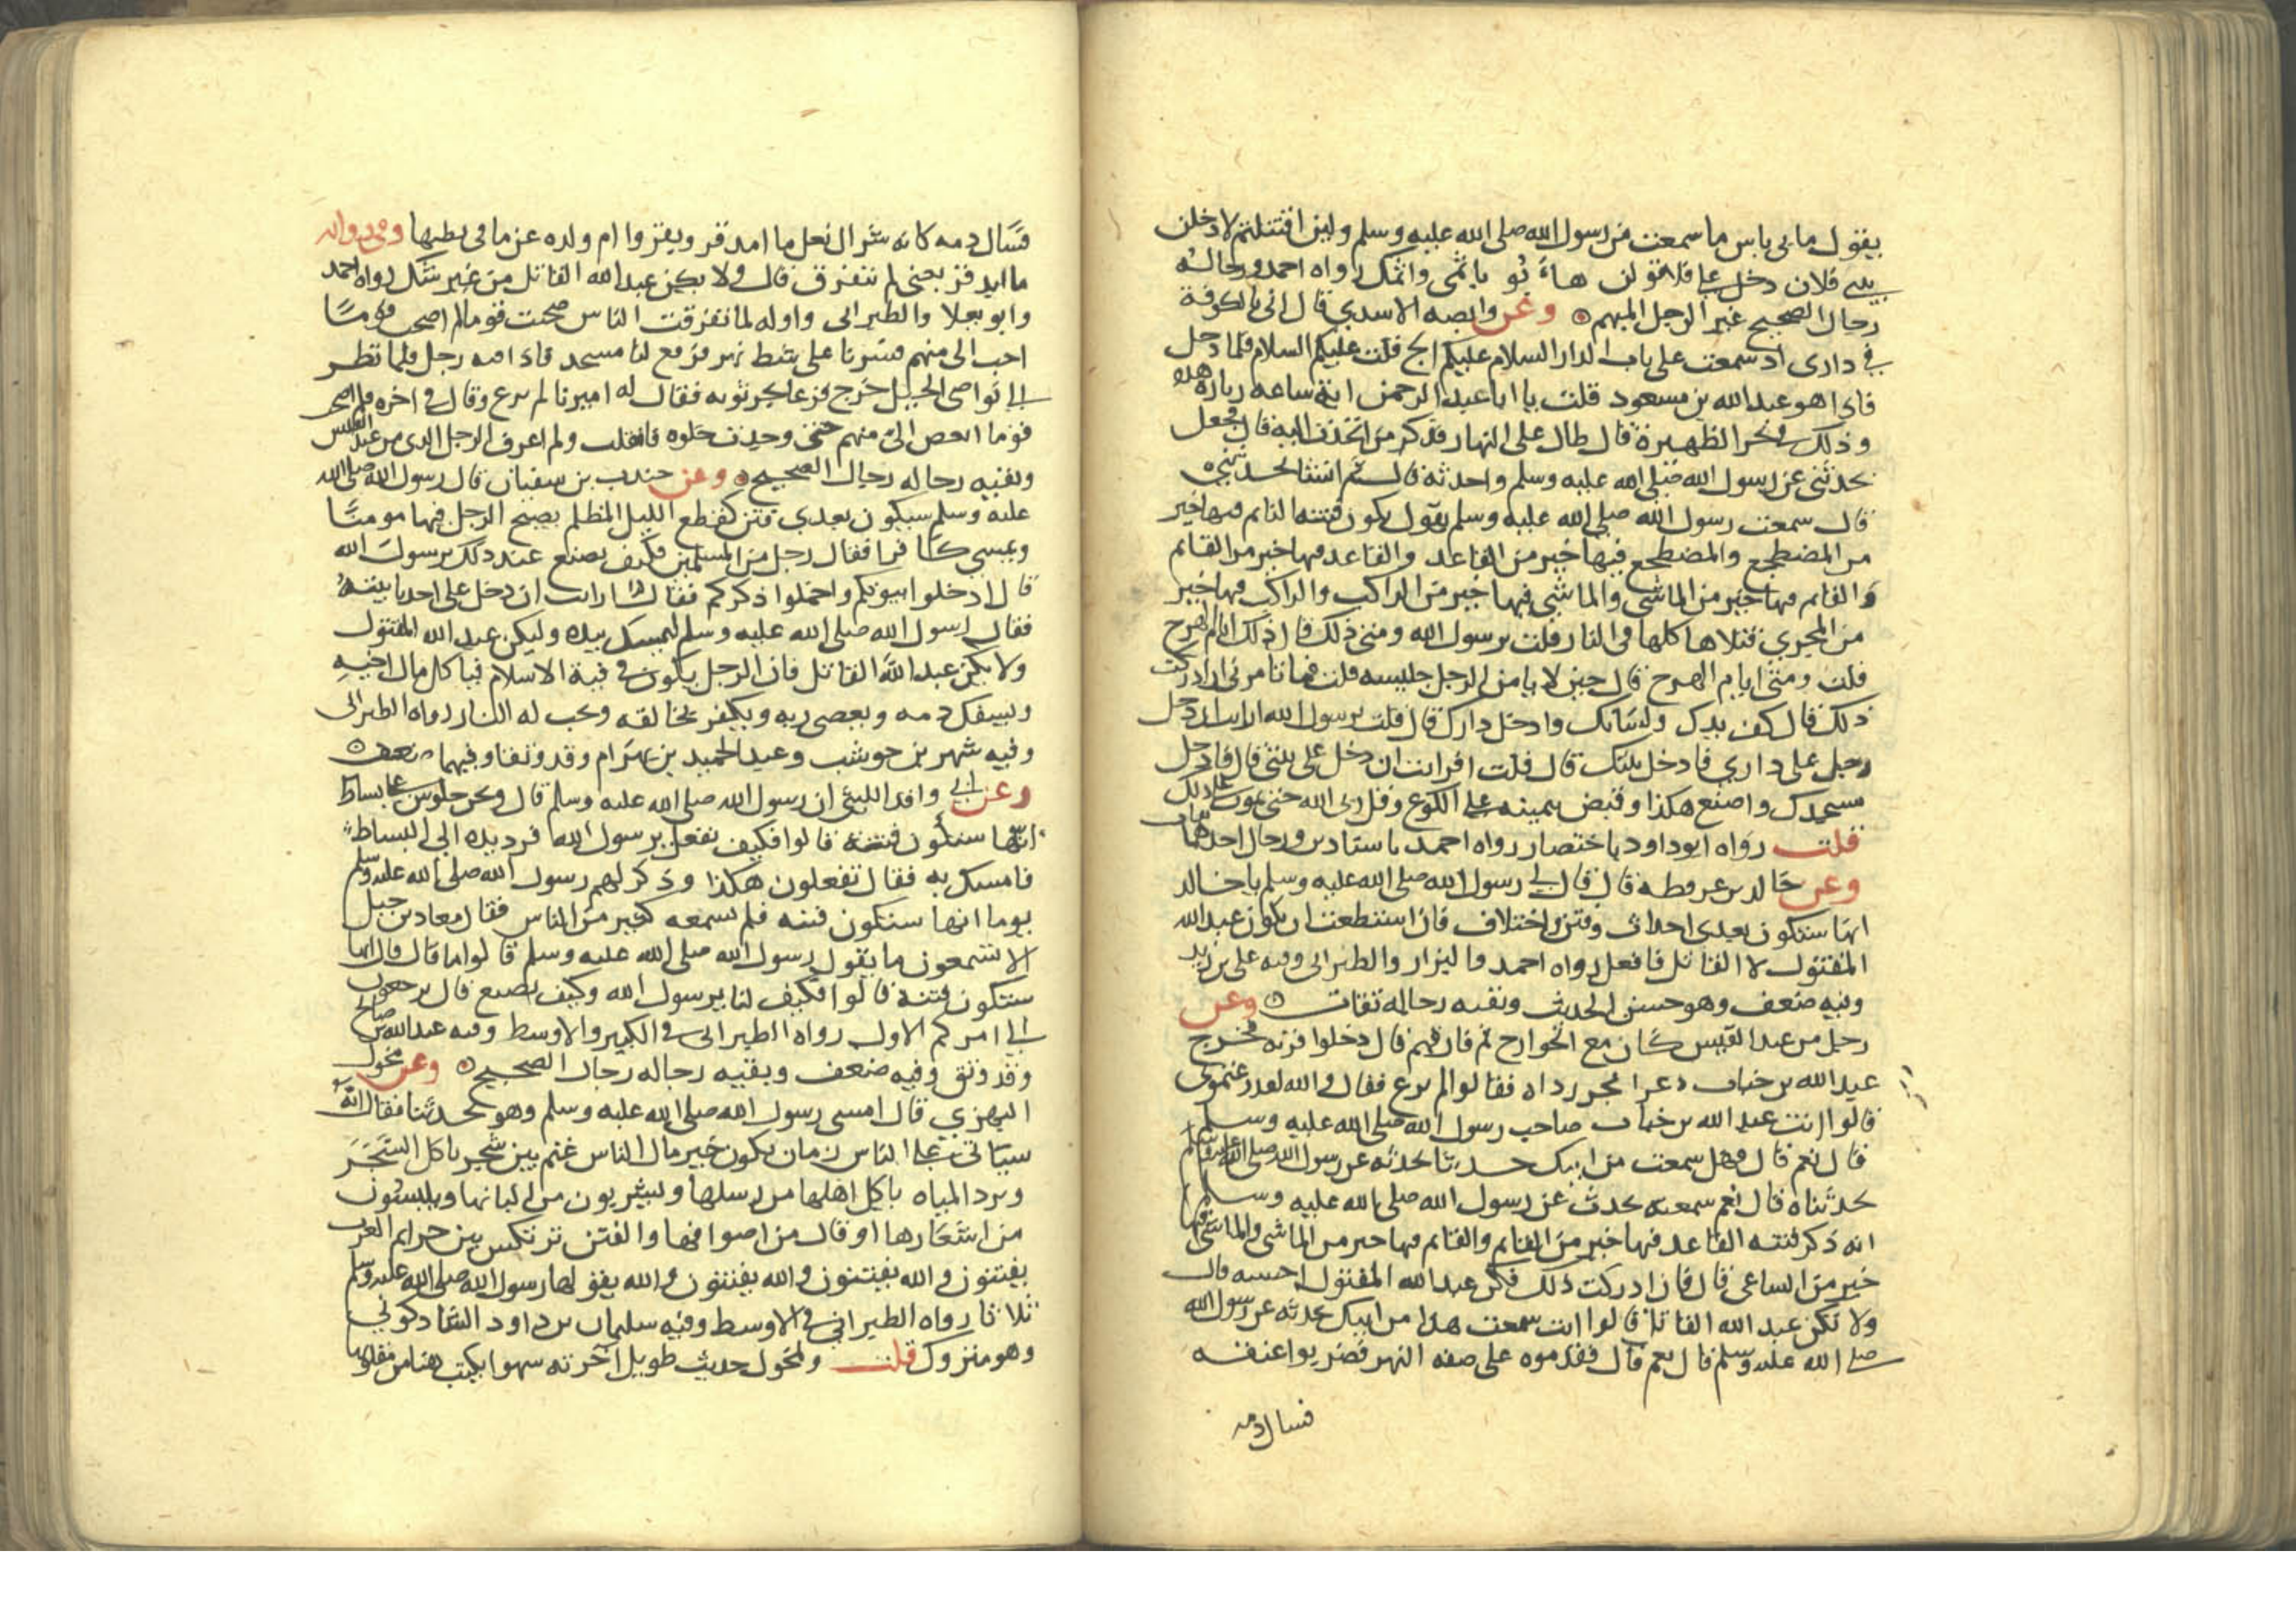 يقول ما بي باس ما سمعت من رسول الله صلى الله عليه وسلم ولين اقتتلتم لادخلن
بيتي فلان دخل علي فلاقولن هاء بو باثمي واثمك رواه احمد ورجاله
رجال الصحيح غير الرجل المبهم وعن وابصه الاسدي قال اني بالكوفة
في داري اد سمعت على باب الدار السلام عليكم الج قلت عليكم السلام فلما دخل
فاذا هو عبد الله بن مسعود قلت يا ابا عبد الرحمن اية ساعه زيارة هذه
وذلك في نحر الظهيرة قال طال علي النهار فذكرت من اتحدث اليه قال فجعل
يحدثني عن رسول الله صلى الله عليه وسلم واحدثه قال ثم انشا يحدثني
قال سمعت رسول الله صلى الله عليه وسلم يقول تكون فتنه النايم فيها خير
من المضطجع والمضطجع فيها خير من القاعد والقاعد فيها خير من القايم
والقايم فيها خير من الماشي والماشي فيها خير من الراكب والراكب فيها خير
من المجري قتلاها كلها في النار قلت يرسول الله ومتى ذلك قال ذلك ايام الهرج
قلت ومتى ايام الهرج قال حين لا يامن الرجل جليسه قلت فما تامرني ان ادركت
ذلك قال كف يدك ولسانك وادخل دارك قال قلت يرسول الله ارايت ان دخل
رجل على داري قال فادخل بيتك قال قلت افرايت ان دخل علي بيتي قال فادخل
مسجدك واصنع هكذا وقبض بيمينه على الكوع وقل ربي الله حتى تموت على ذلك
قلت رواه ابو داود باختصار رواه احمد باسنادين ورجال احدهما ثقات
وعن خالد بن عرفطه قال قال لي رسول الله صلى الله عليه وسلم يا خالد
انها ستكون بعدي احداث وفتن واختلاف فان استطعت ان تكون عبد الله
المقتول لا القاتل فافعل رواه احمد والبزار والطبراني وفيه علي بن زيد
وفيه ضعف وهو حسن الحديث وبقيه رجاله ثقات وعن
رجل من عبد القيس كان مع الخوارج ثم فارقهم قال دخلوا قرية فخرج
عبد الله بن خباب ذعرا يجر رداه فقالوا لم ترع فقال والله لقد رعتموني
قالوا انت عبد الله بن خباب صاحب رسول الله صلى الله عليه وسلم
قال نعم قال فهل سمعت من ابيك حديثا يحدثه عن رسول الله صلى الله عليه وسلم
تحدثناه قال نعم سمعته يحدث عن رسول الله صلى الله عليه وسلم
انه ذكر فتنه القاعد فيها خير من القايم والقايم فيها خير من الماشي والماشي فيها
خير من الساعي قال فان ادركت ذلك فكن عبد الله المقتول احسبه قال
ولا تكن عبد الله القاتل قالوا انت سمعت هذا من ابيك يحدثه عن رسول الله
صلى الله عليه وسلم قال نعم قال فقدموه على ضفه النهر فضربوا عنقه
فسال دمه
فسال دمه كانه شراك نعل ما امدقر وبقروا ام ولده عن ما في بطنها وفي رواية
ما ابدقر يعني لم يتفرق قال ولا يكن عبد الله القاتل من غير شك رواه احمد
وابو يعلا والطبراني واوله لما تفرقت الناس صحبت قوما لم اصحب قوما
احب الي منهم فسرنا على شط نهر فرفع لنا مسجد فاذا فيه رجل فلما نظر
الى نواصي الخيل خرج فزعا يجر ثوبه فقال له اميرنا لم ترع وقال في اخره فلم اصحب
قوما ابغض الي منهم حتى وجدت خلوه فانفلت ولم اعرف الرجل الذي من عبد القيس
وبقيه رجاله رجال الصحيح وعن جندب بن سفيان قال رسول الله صلى الله
عليه وسلم سيكون بعدي فتن كقطع الليل المظلم يصبح الرجل فيها مومنا
ويمسي كافرا فقال رجل من المسلمين فكيف نصنع عند ذلك يرسول الله
قال ادخلوا بيوتكم واخملوا ذكركم فقال ارايت ان دخل على احدنا بيته
فقال رسول الله صلى الله عليه وسلم ليمسك بيده وليكن عبد الله المقتول
ولا يكن عبد الله القاتل فان الرجل يكون في فية الاسلام فياكل مال اخيه
ويسفك دمه ويعصي ربه ويكفر بخالقه وتجب له النار رواه الطبراني
وفيه شهر بن حوشب وعبد الحميد بن بهرام وقد وثقا وفيهما ضعف
وعن ابي واقد الليثي ان رسول الله صلى الله عليه وسلم قال ونحن جلوس على بساط
انها ستكون فتنة قالوا فكيف نفعل يرسول الله فرد يده الى البساط
فامسك به فقال تفعلون هكذا وذكر لهم رسول الله صلى الله عليه وسلم
يوما انها ستكون فتنه فلم يسمعه كثير من الناس فقال معاذ بن جبل
الا تسمعون ما يقول رسول الله صلى الله عليه وسلم قالوا ما قال قال انها
ستكون فتنة قالوا فكيف لنا يرسول الله وكيف نصنع قال ترجعون
الى امركم الاول رواه الطبراني في الكبير والاوسط وفيه عبد الله بن صالح
وقد وثق وفيه ضعف وبقيه رجاله رجال الصحيح وعن مخول
البهزي قال امسى رسول الله صلى الله عليه وسلم وهو يحدثنا فقال انه
سياتي على الناس زمان يكون خير مال الناس غنم بين شجر تاكل الشجر
وترد المياه ياكل اهلها من رسلها ويشربون من البانها ويلبسون
من اشعارها او قال من اصوافها والفتن ترتكس بين جراثيم العرب
يفتنون والله يفتنون والله يفتنون والله يقولها رسول الله صلى الله عليه وسلم
ثلاثا رواه الطبراني في الاوسط وفيه سليمان بن داود الشاذكوني
وهو متروك قلت ولمخول حديث طويل اخرته سهوا يكتب هنا من